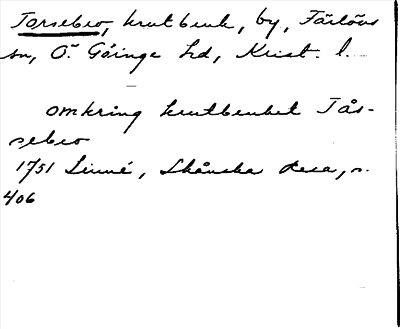 Torsebro, krutbruk, by, Färlövs
sn, Ö. Göinge hd, Krist. l.
omkring krutbruket Tås-
sebro
1751 Linné, Skånska Resa, s.
406